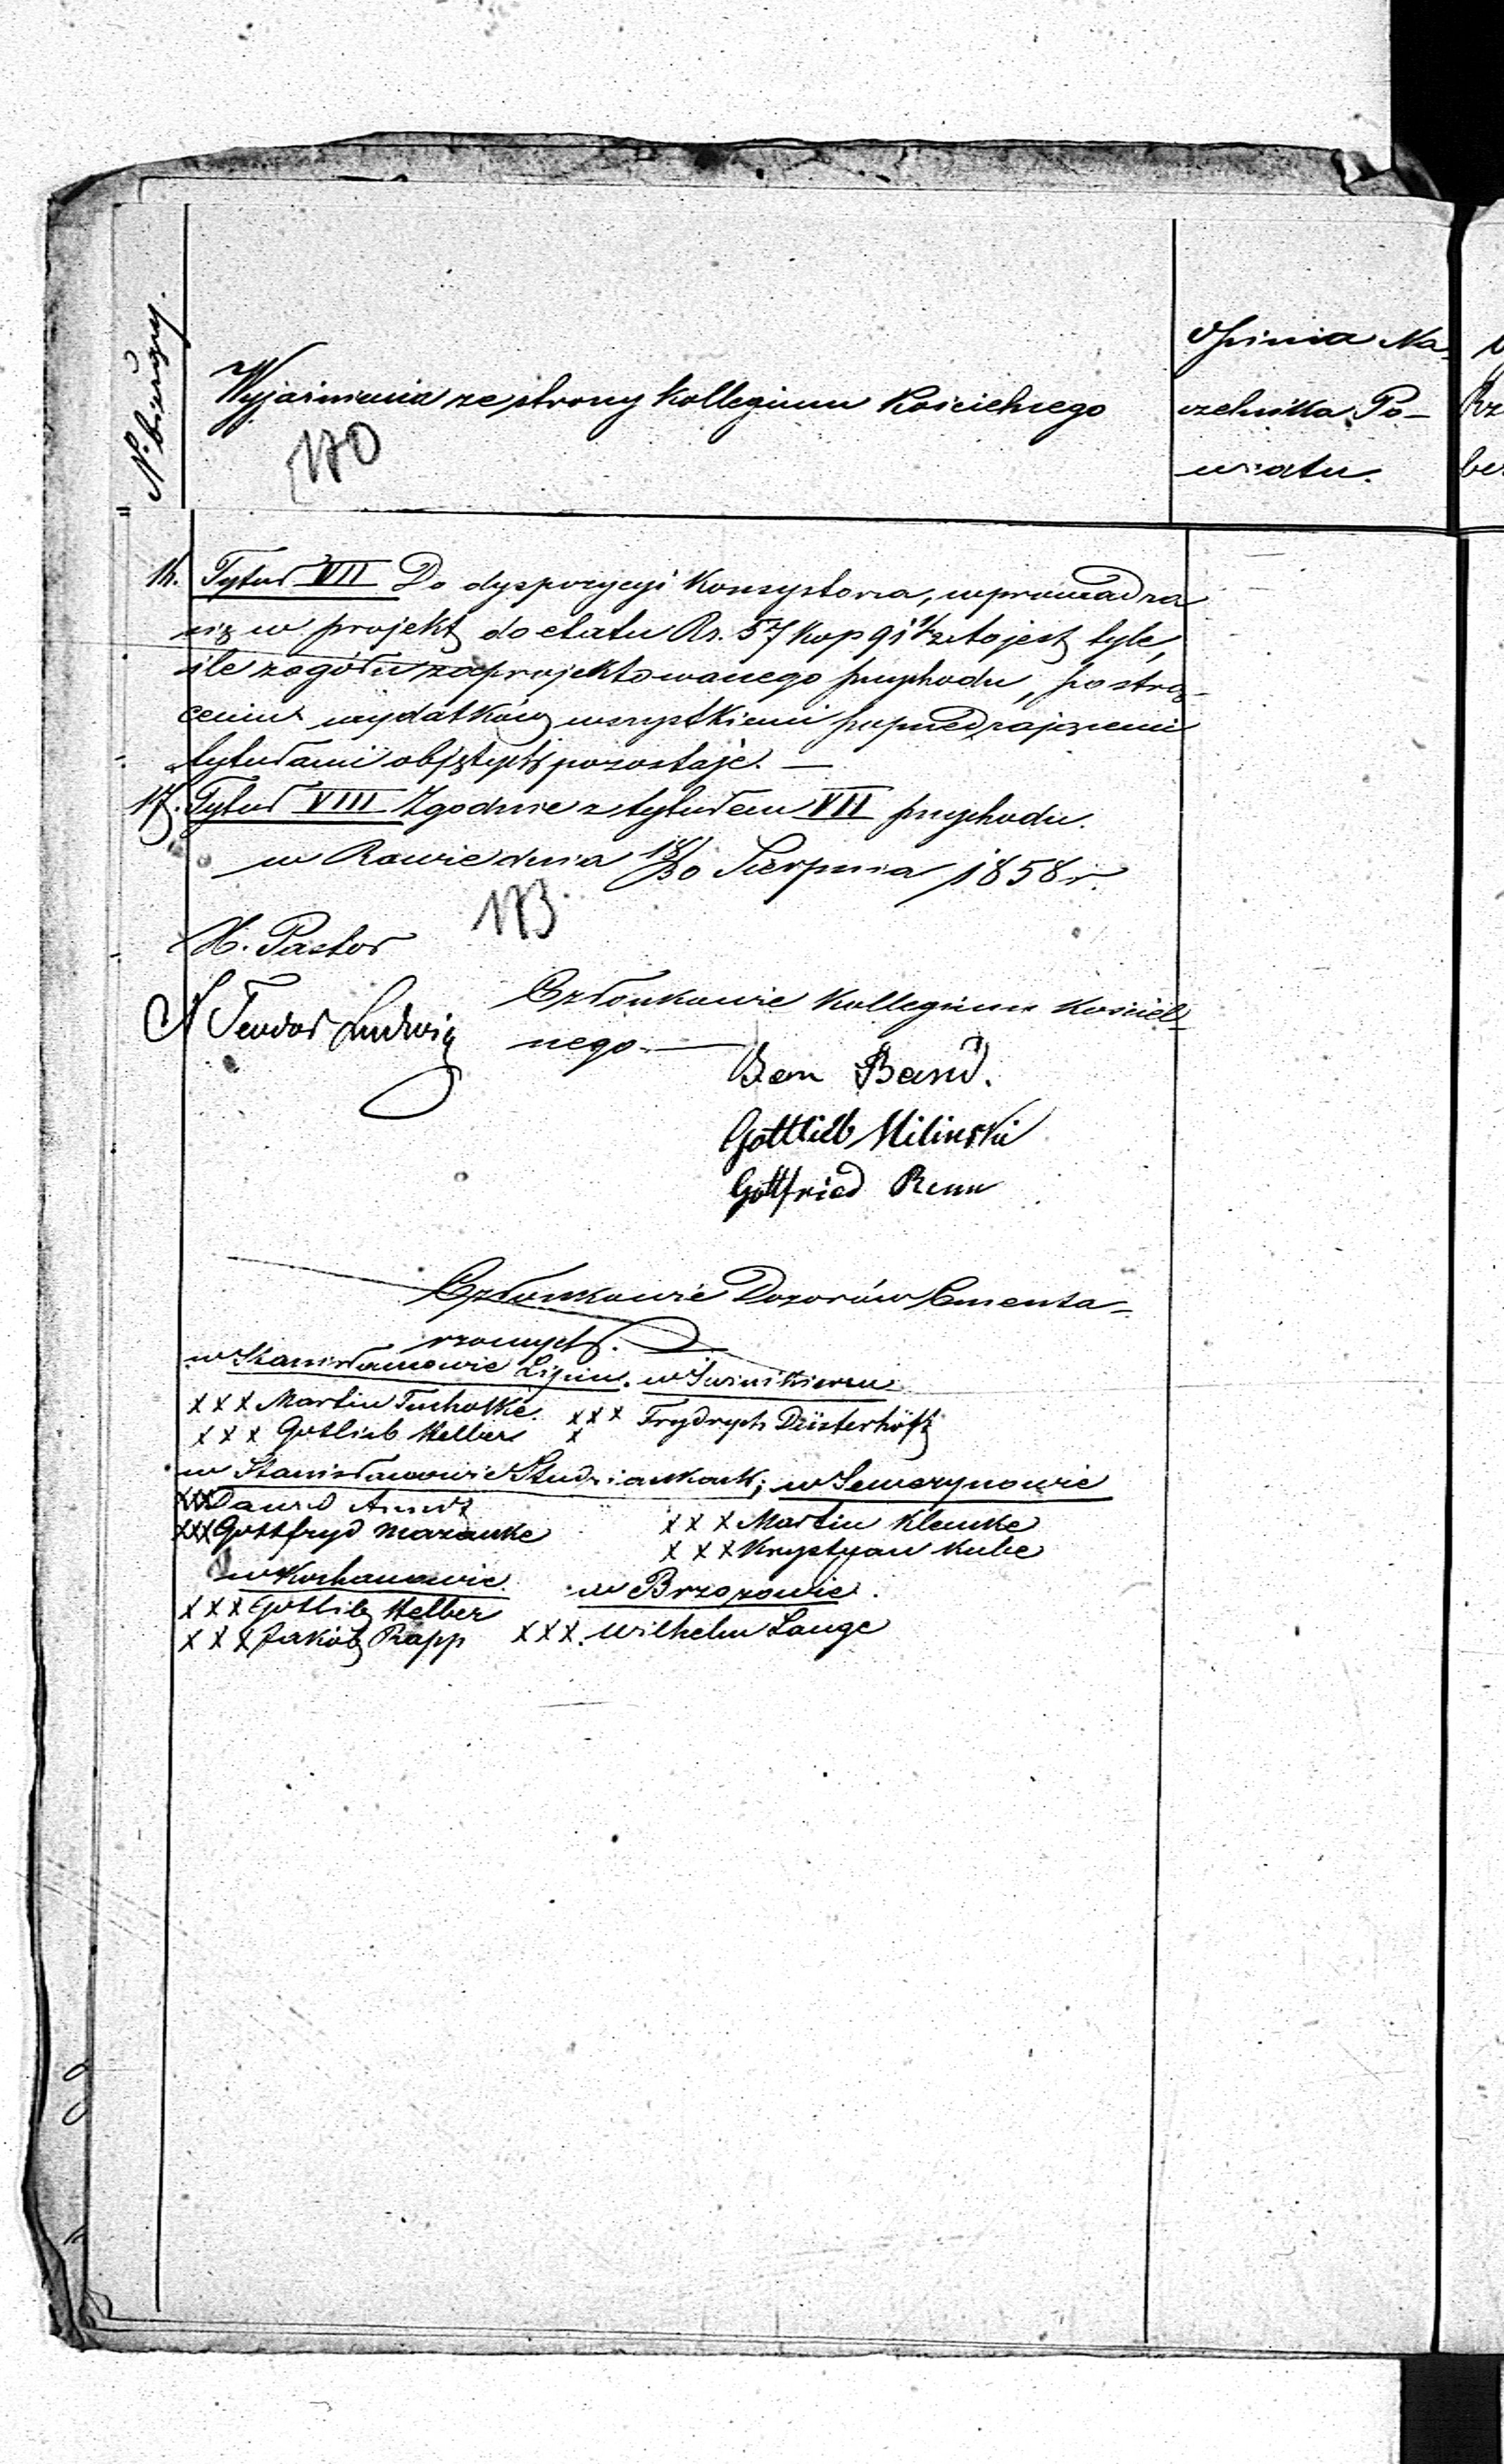 N. bieżący.
Wyjaśnienia ze strony Kollegium Kościelnego
170
Opinia Na-
czelnika Po-
wiatu.
Rz
ber
16. Tytuł VII Do dyspozycyi Konsystorza, wprowadza
się w projekt do etatu Rs. 57 kop 91 1/2 to jest tyle,
ile z ogółu zaprojektowanego przychodu, po strą-
ceniu wydatków wszystkiemi poprzedzającemi
tytułami objętych pozostaje. —
17. Tytuł VIII Zgodnie z tytułem VII przychodu.
w Rawie dnia 18/30 Sierpnia 1858 r.
173
X. Pastor
Teodor Ludwig
Członkowie Kollegium Kościel-
nego. —
Jan Band.
Gottlieb Milinski
Gottfried Renn
Członkowie Dozorów Cmenta-
rzowych.
w Stanisławowie Lipin. w Świnikierzu
xxx Martin Tucholke. xxx Frydrych Düsterhöft
xxx Gotlieb Helber x
w Stanisławowie Studziankach; w Sewerynowie
xxx Dawid Arndt xxx Martin Klemke
xxx Gottfryd Maranke xxx Krystyan Kube
w Kochanowie. w Brzozowie.
xxx Gotlib Helber
xxx Jakób Rapp xxx. Wilhelm Lange